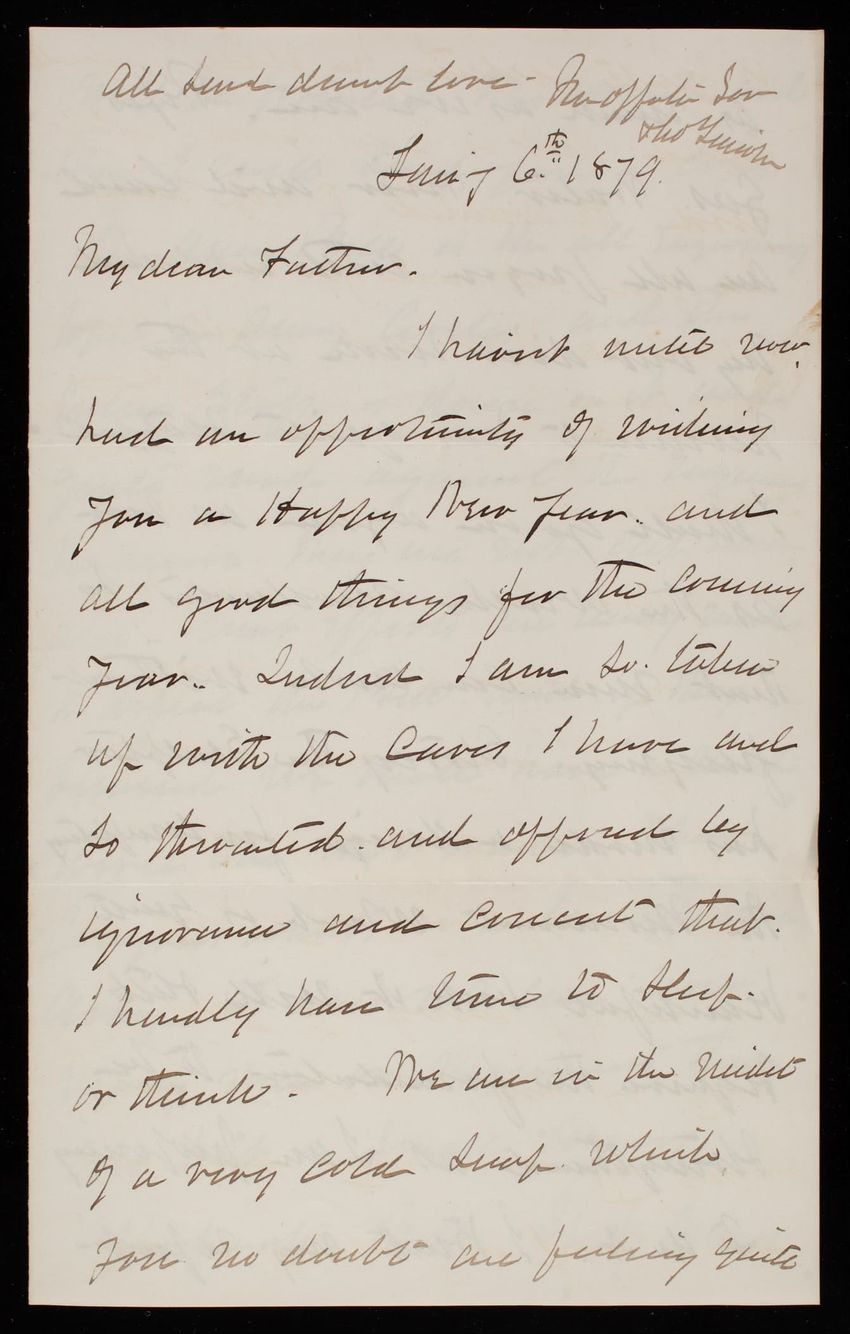 All send dearest love - Yr affate Son
Thos Lincoln
Jany 6th 1879.
My dear Father.
I havent until now
had an opportunity of wishing
you a Happy New Year. and
all good things for the coming
Year.. Indeed I am so. taken
up with the Cares I have and
so thwarted. and opposed by
ignorance and conceit that.
I hardly have time to sleep.
or think. We are in the midst
of a very cold snap. which
you no doubt are feeling quite